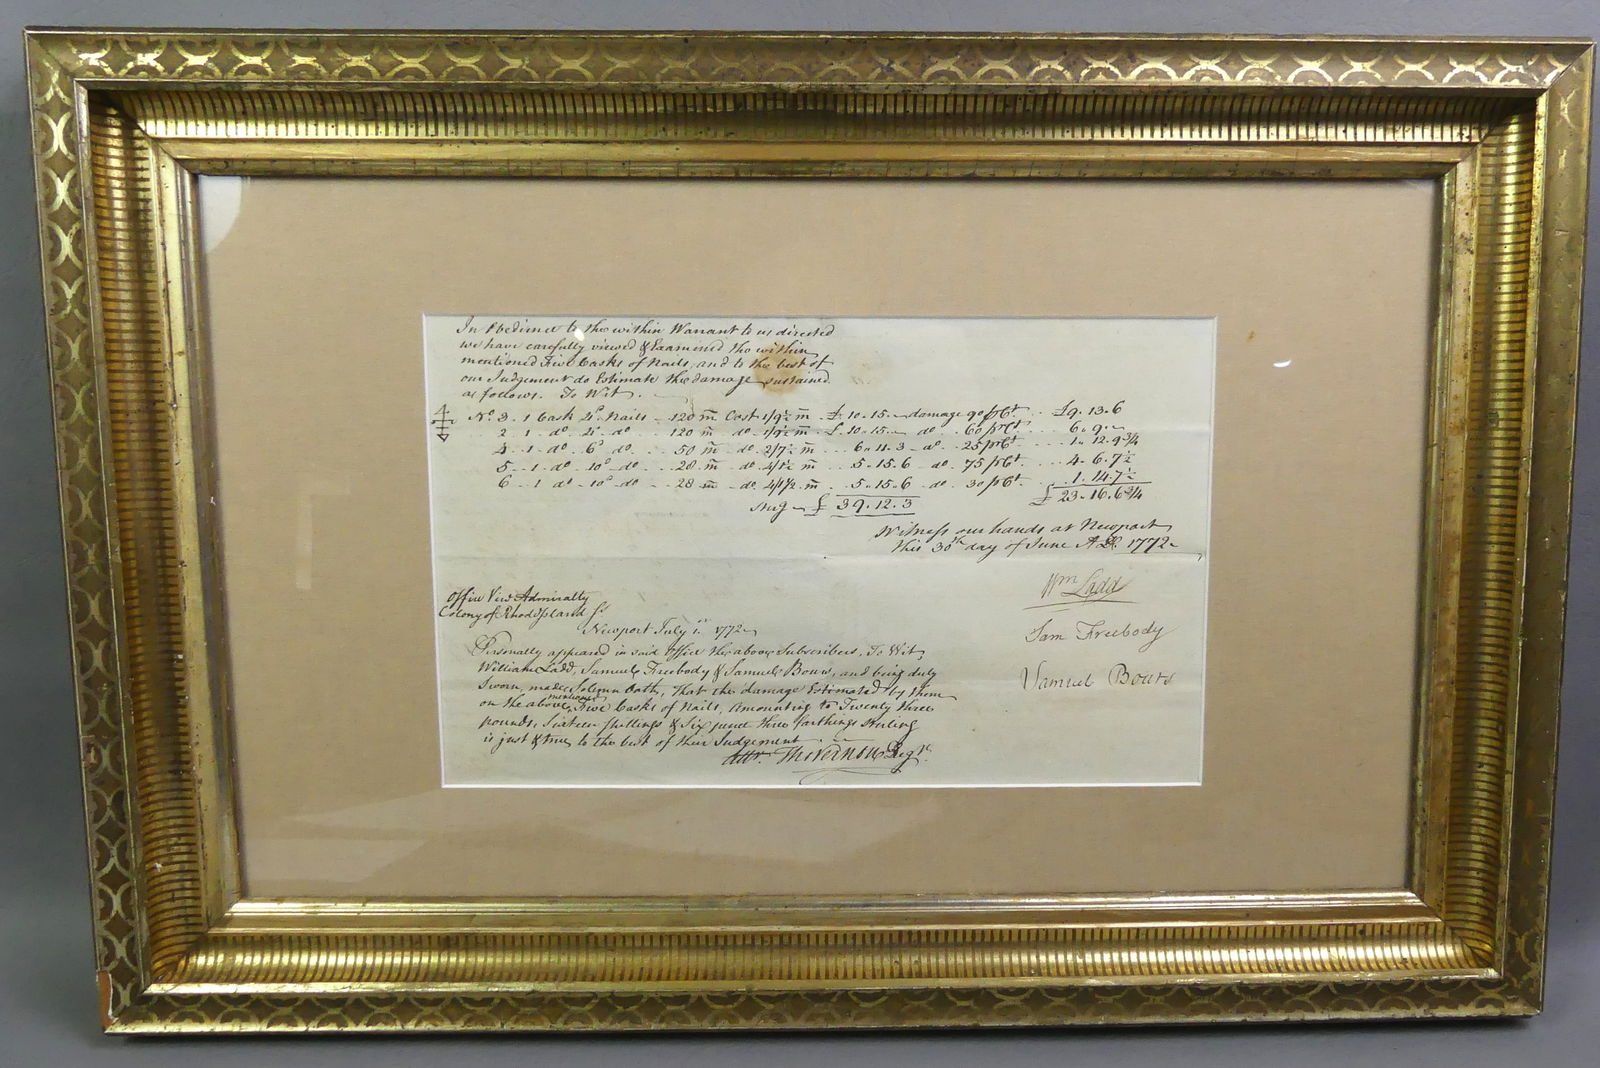 In Obedience to the within Warrant to us directed
we have carefully viewed & Examined the within
mentioned Five Casks of Nails, and to the best of
our Judgement do Estimate the damage sustained
as follows. To Wit.
4
No. 3. 1 Cask 4d Nails .. 120 m Cost 1/9½ m £ 10.15.— damage 90 prCt .. £9.13.6
2 1 do 4d do .. 120 m do 1/9½ m £ 10.15.— do 60 prCt .. 6.9.—
4 .. 1 do 6d do .. 50 m do 2/7½ m .. 6.11.3 do 25 prCt .. 1.12.9¾
5 .. 1 do 10d do .. 28 m do 4/1½ m .. 5.15.6 do 75 prCt .. 4.6.7½
6 .. 1 do 10d do .. 28 m do 4/1½ m .. 5.15.6 do 30 prCt .. 1.14.7½
£ 39.12.3 £ 23.16.6¾
Witness our hands at Newport
this 30th day of June AD. 1772
Wm Ladd
Sam Freebody
Samuel Bours
Office Vice Admiralty
Colony of Rhod Island Ss
Newport July 1st 1772
Personally appeared in said Office the above Subscribers, To Wit,
William Ladd, Samuel Freebody & Samuel Bours, and being duly
Sworn, made Solemn Oath, That the damage Estimated by them
on the above mentioned Five Casks of Nails, Amounting to Twenty three
pounds, Sixteen shillings & Six pence three farthings sterling
is just & true, to the best of their Judgement
Attr. Tho Vernon Regr.